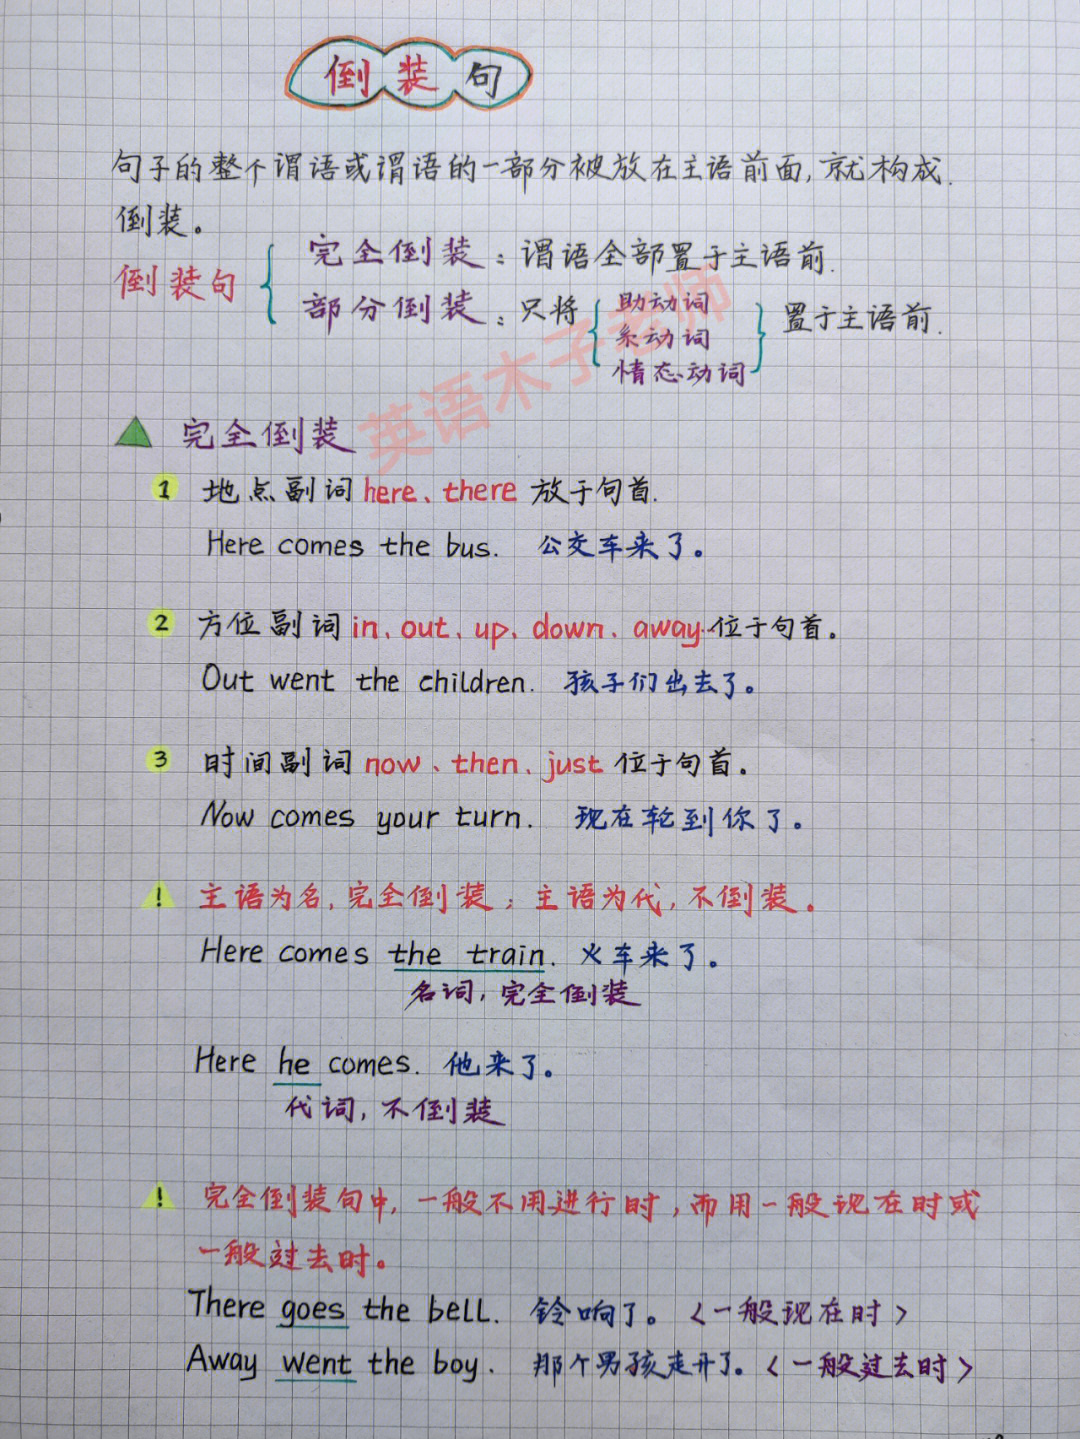 倒装句
句子的整个谓语或谓语的一部分被放在主语前面,就构成
倒装。
倒装句
完全倒装:谓语全部置于主语前.
部分倒装:只将
助动词
系动词
情态动词
置于主语前.
英语木子老师
完全倒装
1 地点副词here、there 放于句首.
Here comes the bus. 公交车来了。
2 方位副词in、out、up、down、away··位于句首。
Out went the children. 孩子们出去了。
3 时间副词now、then、just 位于句首。
Now comes your turn. 现在轮到你了。
! 主语为名,完全倒装;主语为代,不倒装。
Here comes the train. 火车来了。
名词,完全倒装
Here he comes. 他来了。
代词,不倒装
! 完全倒装句中,一般不用进行时,而用一般现在时或
一般过去时。
There goes the bell. 铃响了。〈一般现在时〉
Away went the boy. 那个男孩走开了。〈一般过去时〉